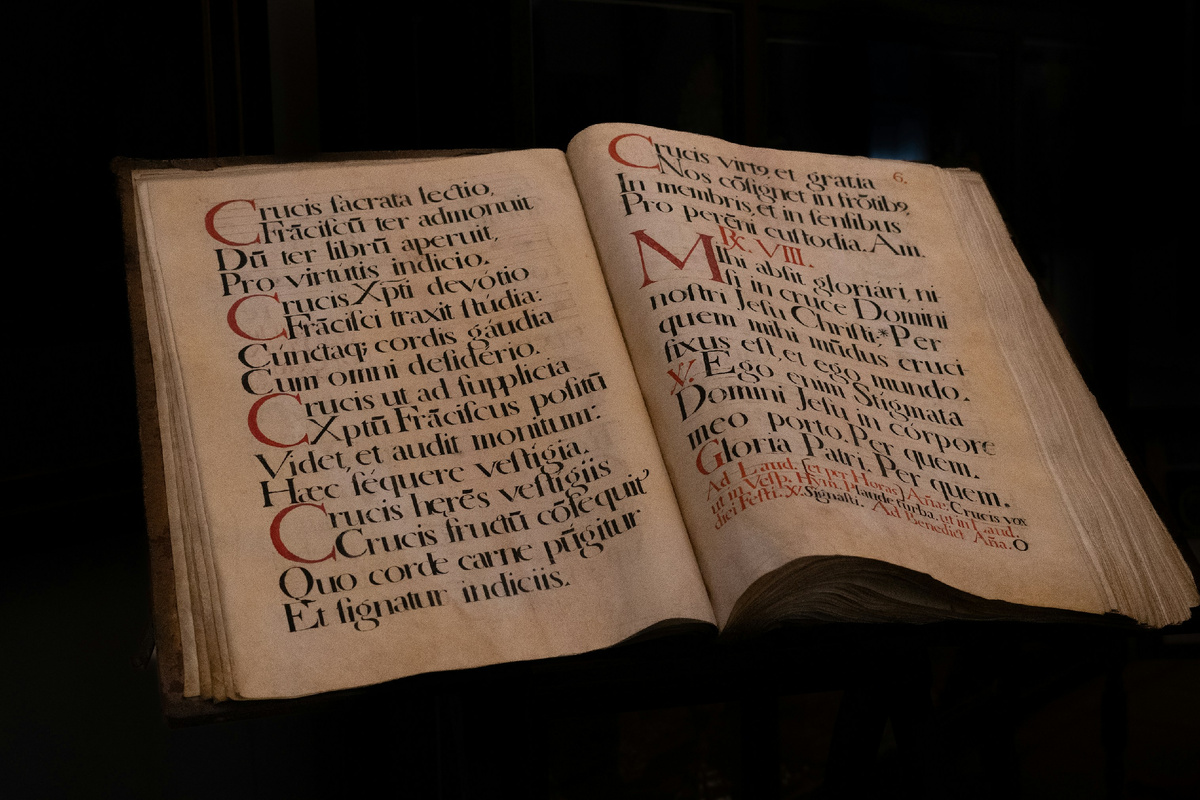 Crucis ſacrata lectio,
Frāciſcū ter admonuit
Dū ter librū aperuit,
Pro virtutis indicio.
Crucis Xpti devótio
Frāciſci traxit ſtúdia:
Cūnctaq; cordis gáudia
Cum omni deſidério.
Crucis ut ad ſupplicia
Xptū Frāciſcus poſitū
Videt, et audit monitum:
Hæc ſéquere veſtígia.
Crucis herēs veſtígiis
Crucis fructū cōſequit
Quo corde carne pūgitur
Et ſignatur indiciis.
6.
Crucis virtꝯ, et gratia
Nos cōſignet in frōtibꝯ,
In membris, et in ſenſibus
Pro perēni cuſtodia. Am.
℞. VIII.
Mihi abſit gloriári, ni-
ſi in cruce Domini
noſtri Jeſu Chriſti:* Per
quem mihi mūdus cruci-
fixus eſt, et ego mundo.
℣. Ego enim Stigmata
Domini Jeſu in córpore
meo porto. Per quem.
Gloria Patri. Per quem.
Ad Laud. (et per Horas) Aña. Crucis vox
ut in Veſp. Hyñ. Plaude turba. ut in Laud.
diei Feſti. ℣. Signaſti. Ad Benedict Aña. O